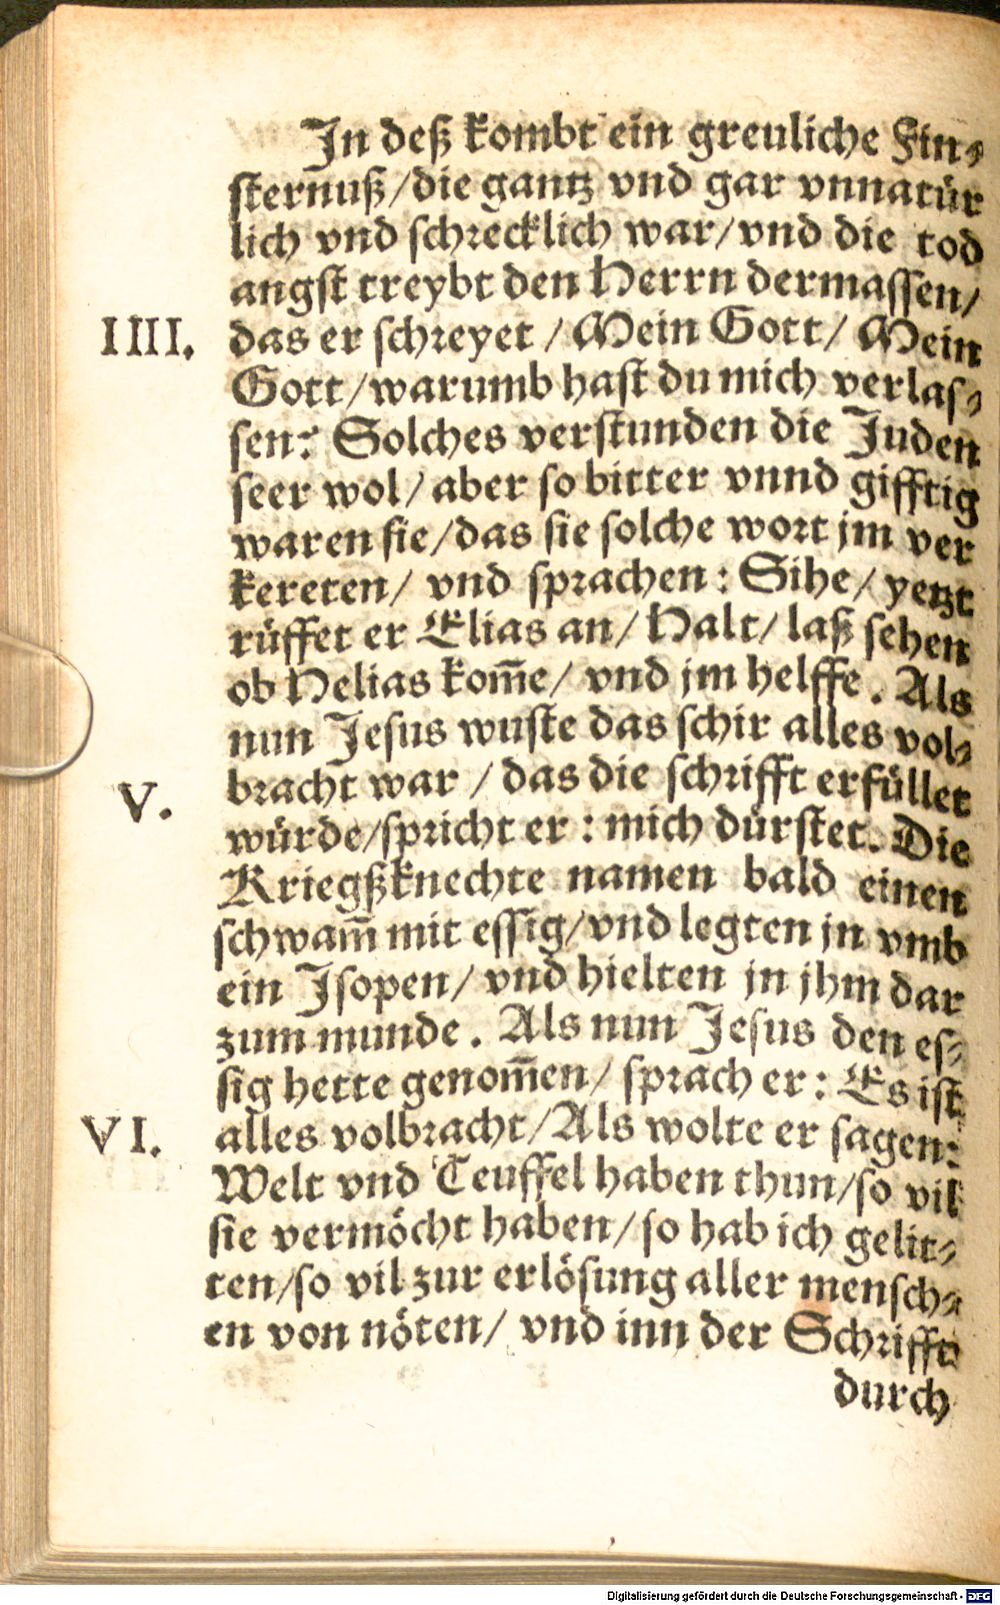 In deß kombt ein greuliche Fin⸗
sternuß/die gantz vnd gar vnnatür
lich vnd schrecklich war/vnd die tod
angst treybt den Herrn dermassen/
IIII. das er schreyet / Mein Gott/ Mein
Gott/warumb hast du mich verlas⸗
sen? Solches verstunden die Juden
seer wol/ aber so bitter vnnd gifftig
waren sie/das sie solche wort jm ver
kereten/ vnd sprachen: Sihe/ yetzt
rüffet er Elias an/ Halt/ laß sehen
ob Helias kom̄e/ vnd jm helffe. Als
nun Jesus wuste das schir alles vol⸗
V. bracht war / das die schrifft erfüllet
würde/spricht er: mich dürstet. Die
Kriegßknechte namen bald einen
schwam̄ mit essig/vnd legten jn vmb
ein Isopen/ vnd hielten jn jhm dar
zum munde. Als nun Jesus den es⸗
sig hette genom̄en/ sprach er: Es ist
VI. alles volbracht/Als wolte er sagen:
Welt vnd Teuffel haben thun/so vil
sie vermöcht haben/so hab ich gelit⸗
ten/so vil zur erlösung aller mensch⸗
en von nöten/ vnd inn der Schrifft
durch
Digitalisierung gefördert durch die Deutsche Forschungsgemeinschaft - DFG